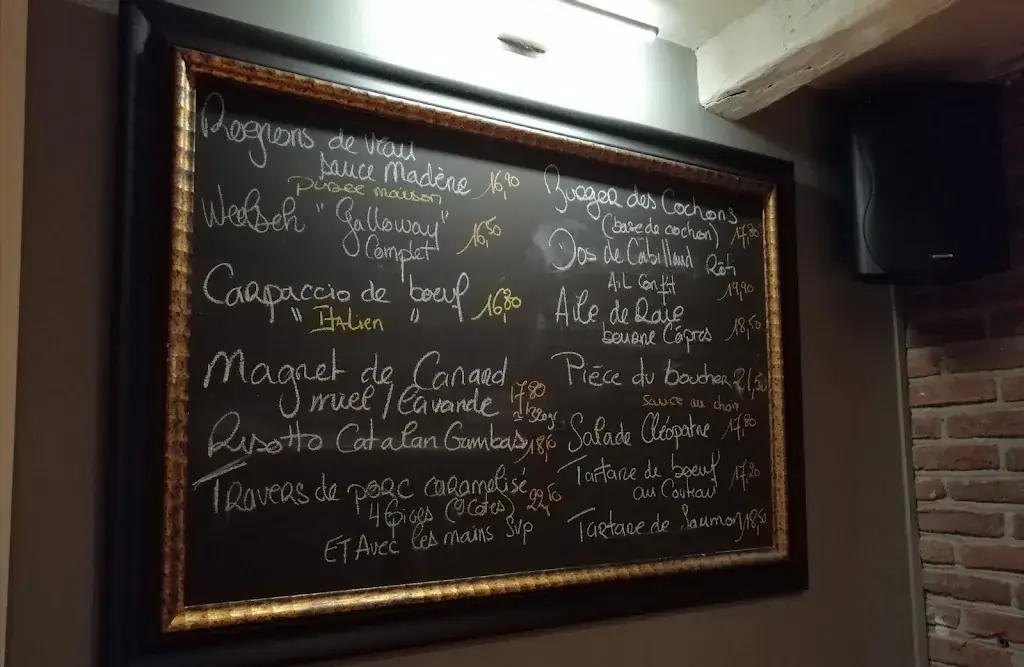 Rognons de veau
sauce Madère 16,90
purée maison
Welsch "Galloway"
Complet 16,50
Carpaccio de boeuf 16,80
" Italien "
Magret de Canard
miel / lavande 17,80
Risotto Catalan Gambas
Travers de porc caramelisé
22,50
ET Avec les mains SVP
Burger des Cochons
(base de cochon) 17,80
Dos de Cabillaud Rôti
Ail confit 19,90
Aile de Raie
beurre Câpres 18,50
Pièce du boucher 21,50
sauce au choix
Salade Cléopatre 17,80
Tartare de boeuf 17,20
au Couteau
Tartare de Saumon 18,50